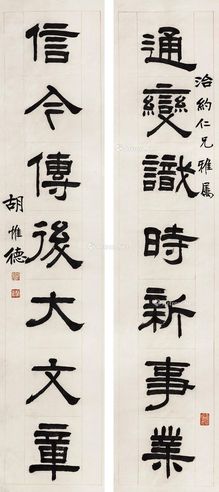 通變識時新事業
治約仁兄雅屬
信今傳後大文章
胡惟德